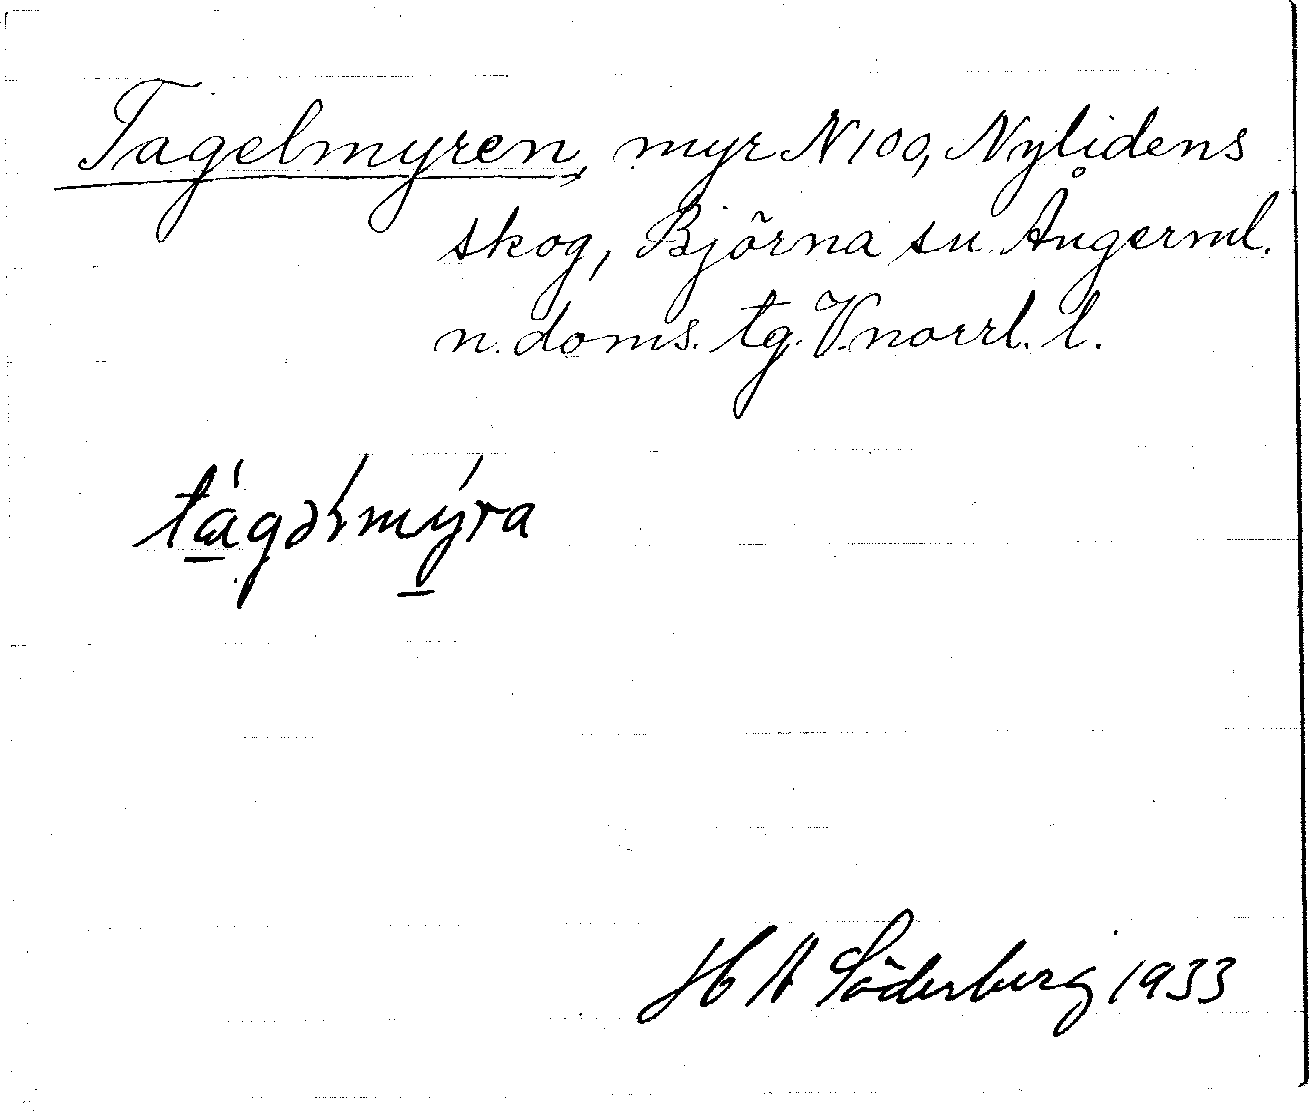 Tagelmyren, myr N 100, Nylidens
skog, Björna sn Ångerml.
n. doms. tg. V.norrl. l.
tágəlmýra
H A Söderberg 1933